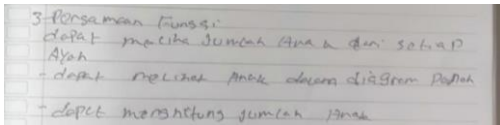 3 Persamaan Fungsi:
dapat meliha Jumlah Anak dari setiap
Ayah
- dapat melihat Anak dalam diagram Pohon
- dapet menghitung jumlah Anak